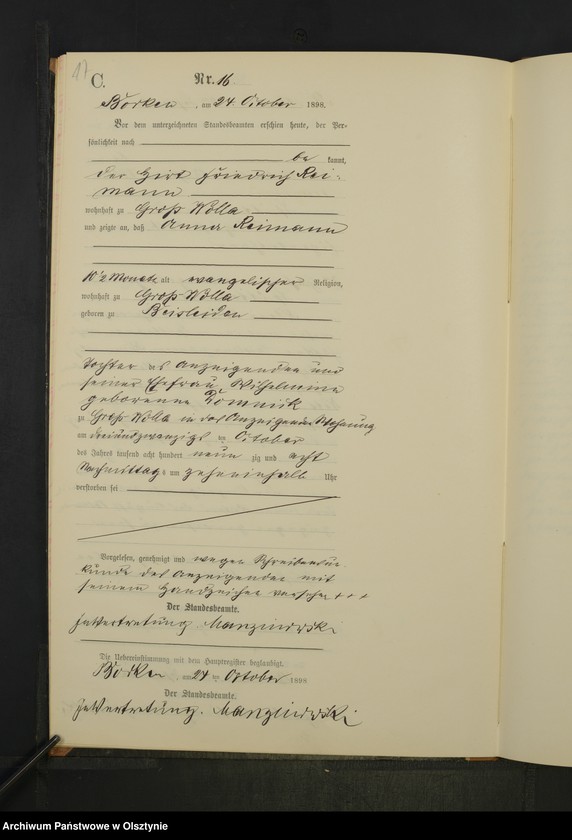 17
C.
Nr. 16
Borken, am 24 October 1898.
Vor dem unterzeichneten Standesbeamten erschien heute, der Per-
sönlichkeit nach
be kannt,
der Hirt Friedrich Rei-
mann
wohnhaft zu Groß Wolla
und zeigte an, daß Anna Reimann
10½ Monate alt evangelischer Religion,
wohnhaft zu Groß Wolla
geboren zu Beisleiden
Tochter des Anzeigenden und
seiner Ehefrau Wilhelmine
geborenen Domnick
zu Groß Wolla in des Anzeigenden Wohnung
am dreiundzwanzigsten October
des Jahres tausend acht hundert neun zig und acht
Nachmittags um zeheneinhalb Uhr
verstorben sei
Vorgelesen, genehmigt und wegen Schreibensun-
kunde des Anzeigenden mit
seinem Handzeichen versehen + + +
Der Standesbeamte.
In Vertretung
Die Uebereinstimmung mit dem Hauptregister beglaubigt.
Borken, am 24 ten October 1898
Der Standesbeamte.
In Vertretung.
Archiwum Państwowe w Olsztynie